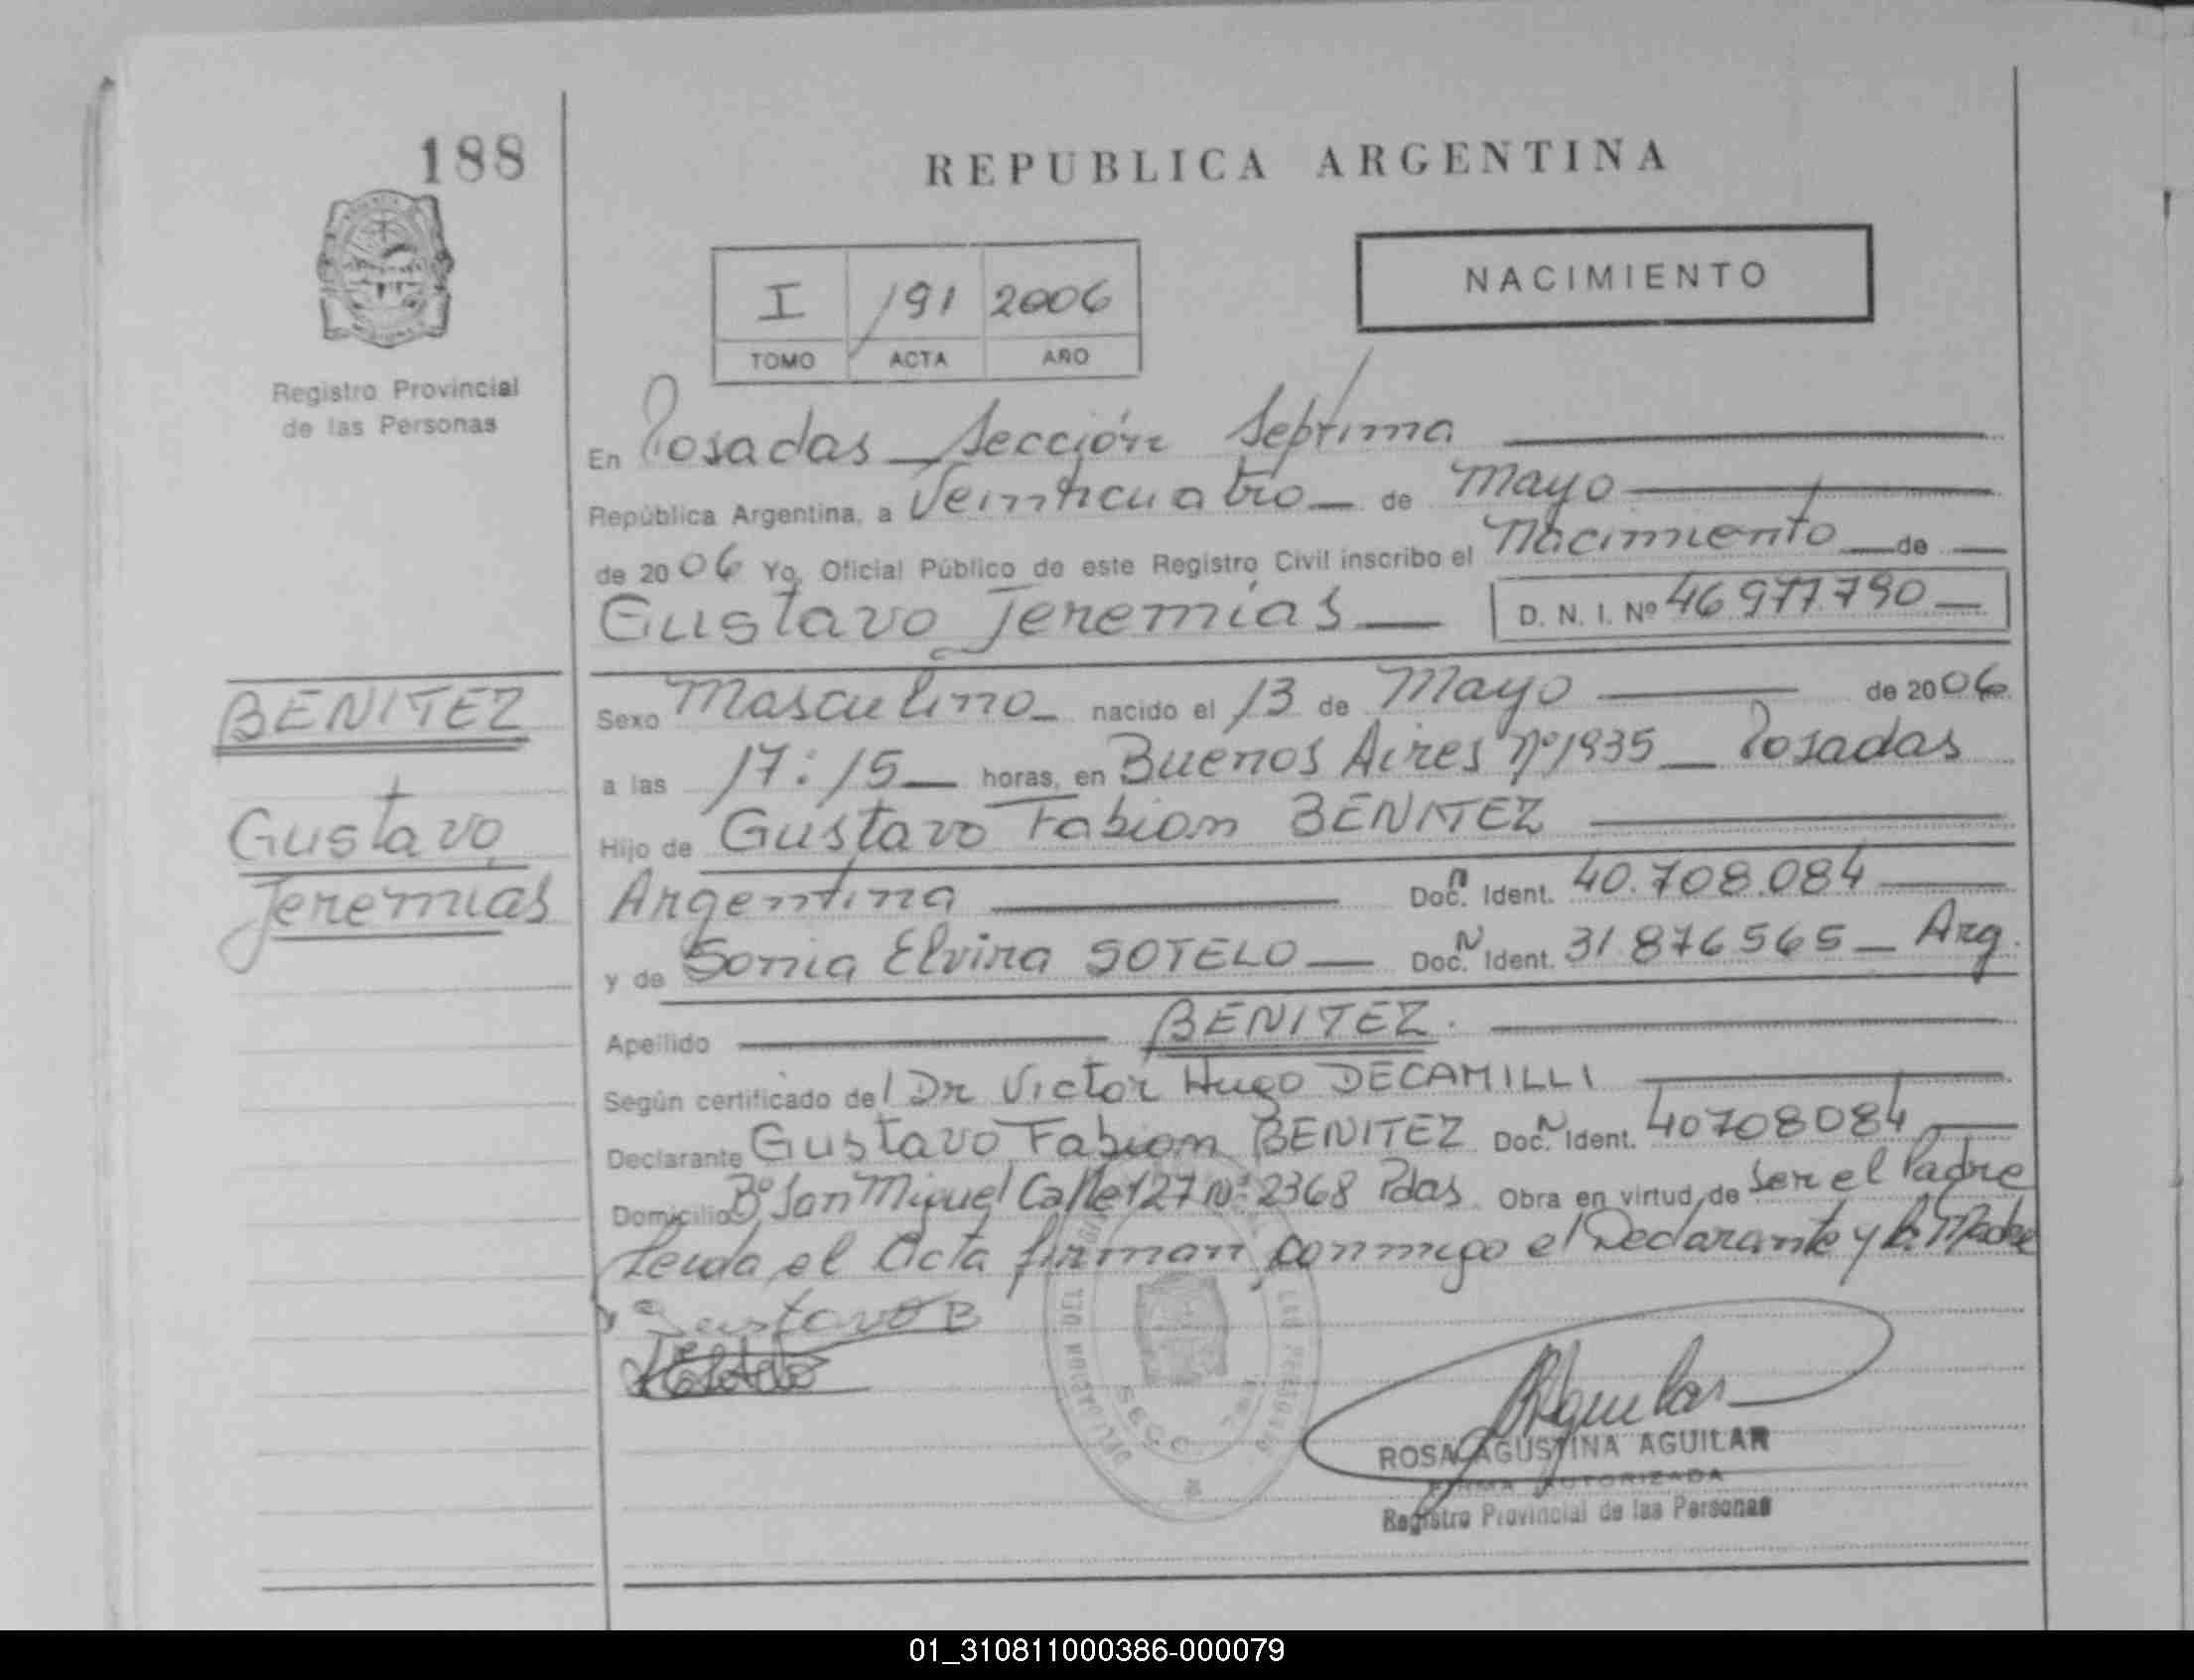 188
REPUBLICA ARGENTINA
NACIMIENTO
I 191 2006
TOMO ACTA AÑO
Registro Provincial
de las Personas
En Posadas Sección Septima
República Argentina, a Veinticuatro de Mayo
de 2006 Yo, Oficial Público de este Registro Civil inscribo el Nacimiento de
Gustavo Jeremías D. N. I. Nº 46 977.790
BENITEZ
Gustavo
Jeremias
Sexo Masculino nacido el 13 de Mayo de 2006
a las 17:15 horas, en Buenos Aires nº 1935 Posadas
Hijo de Gustavo Fabian BENITEZ
Argentina Doc. N Ident. 40.708.084
y de Sonia Elvira SOTELO Doc. N Ident. 31 876565 Arg.
Apellido BENITEZ.
Según certificado del Dr Victor Hugo DECAMILLI
Declarante Gustavo Fabian BENITEZ Doc. N Ident. 40708084
Domicilio Bº San Miguel Calle 127 Nº 2368 Pdas. Obra en virtud de ser el Padre
Leida el Acta firman conmigo el Declarante y la Madre
Gustavo B
ROSA AGUSTINA AGUILAR
FIRMA AUTORIZADA
Registro Provincial de las Personas
01_310811000386-000079